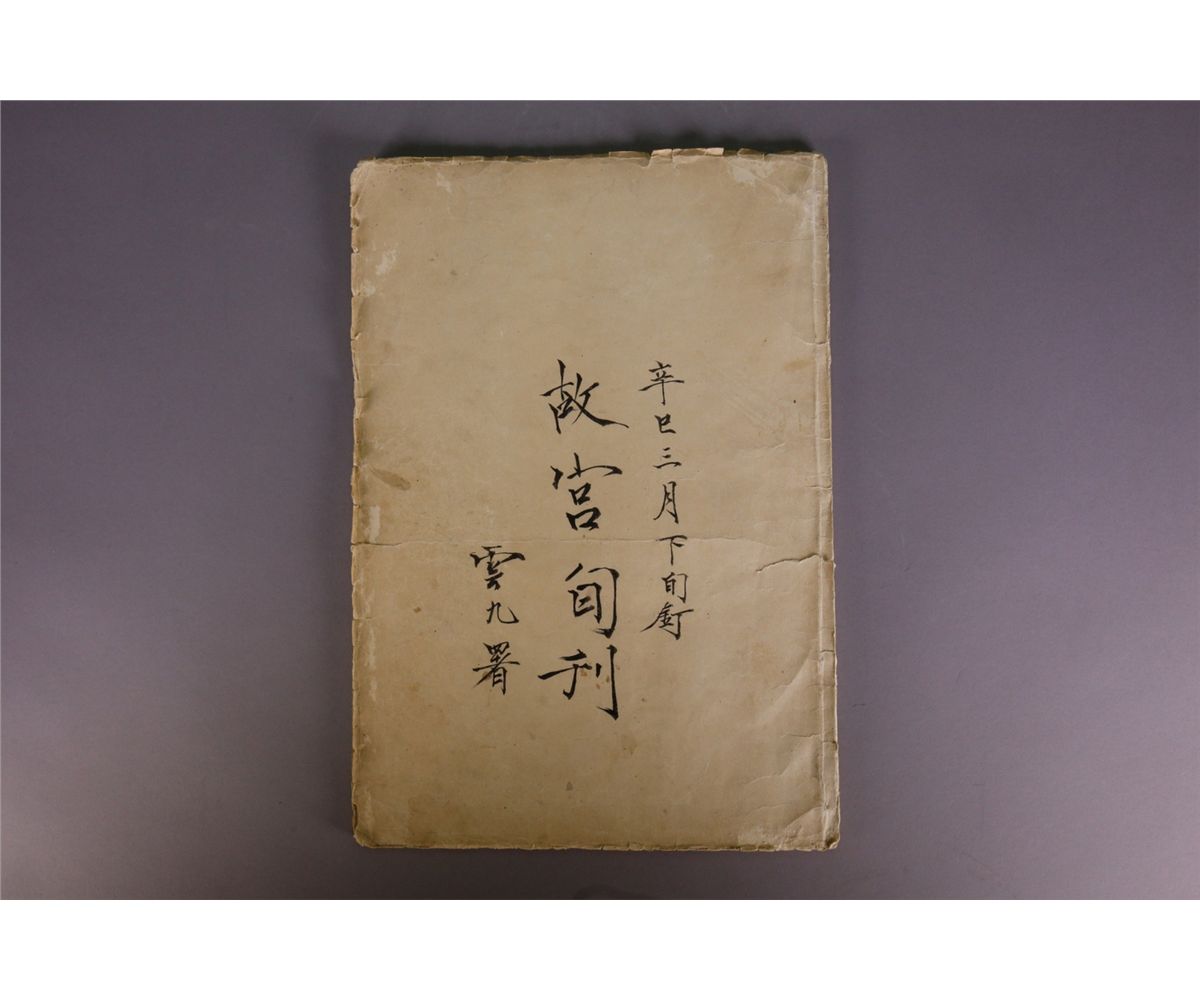 辛巳三月下旬訂
故宮旬刊
雲九署